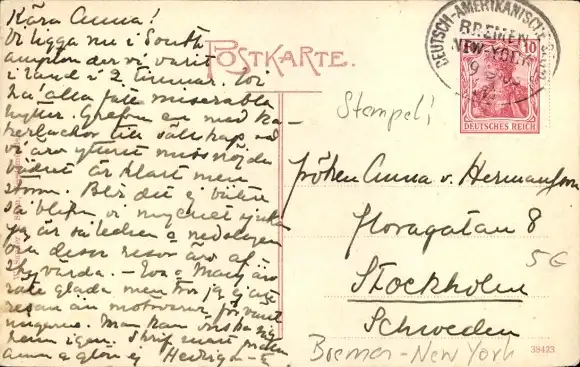 Kära Anna!
Vi ligga nu i South
ampton der vi varit
i land i 2 timmar. Vi
ha alla fått miserabla
hytter. Grefven en med ka
kerlackor till sällskap så
vi äro ytterst missnöjda
vädret är klart men
storm. Blir det ej bättre
så blifva vi mycket sjuka
jag är så ledsen o nedslagen
om dessa resor äro af
värda. – Eva o Mary äro
rätt glada men tror jag ej
resan än motsvarar förvänt
ningarne. Man kan önska sig
hem igen. Skrif snart
o glöm ej Hedvig
POSTKARTE.
DEUTSCH-AMERIKANISCHE SEEPOST
BREMEN
NEW-YORK
10
DEUTSCHES REICH
Stempel!
Fröken Anna v. Hermansson
Floragatan 8
5G
Stockholm
Schweden
Bremen - New York
39423